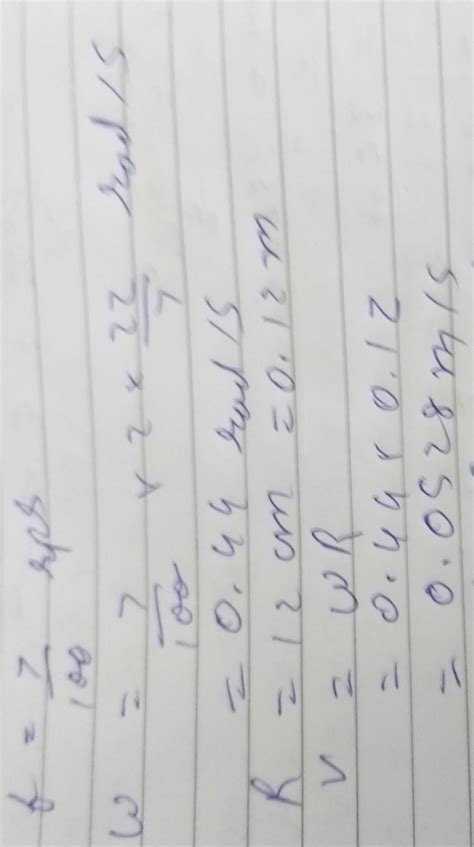 f = 7/100 rps
ω = 7/100 × 2 × 22/7 rad/s
= 0.44 rad/s
R = 12 cm = 0.12 m
v = ωR
= 0.44 × 0.12
= 0.0528 m/s